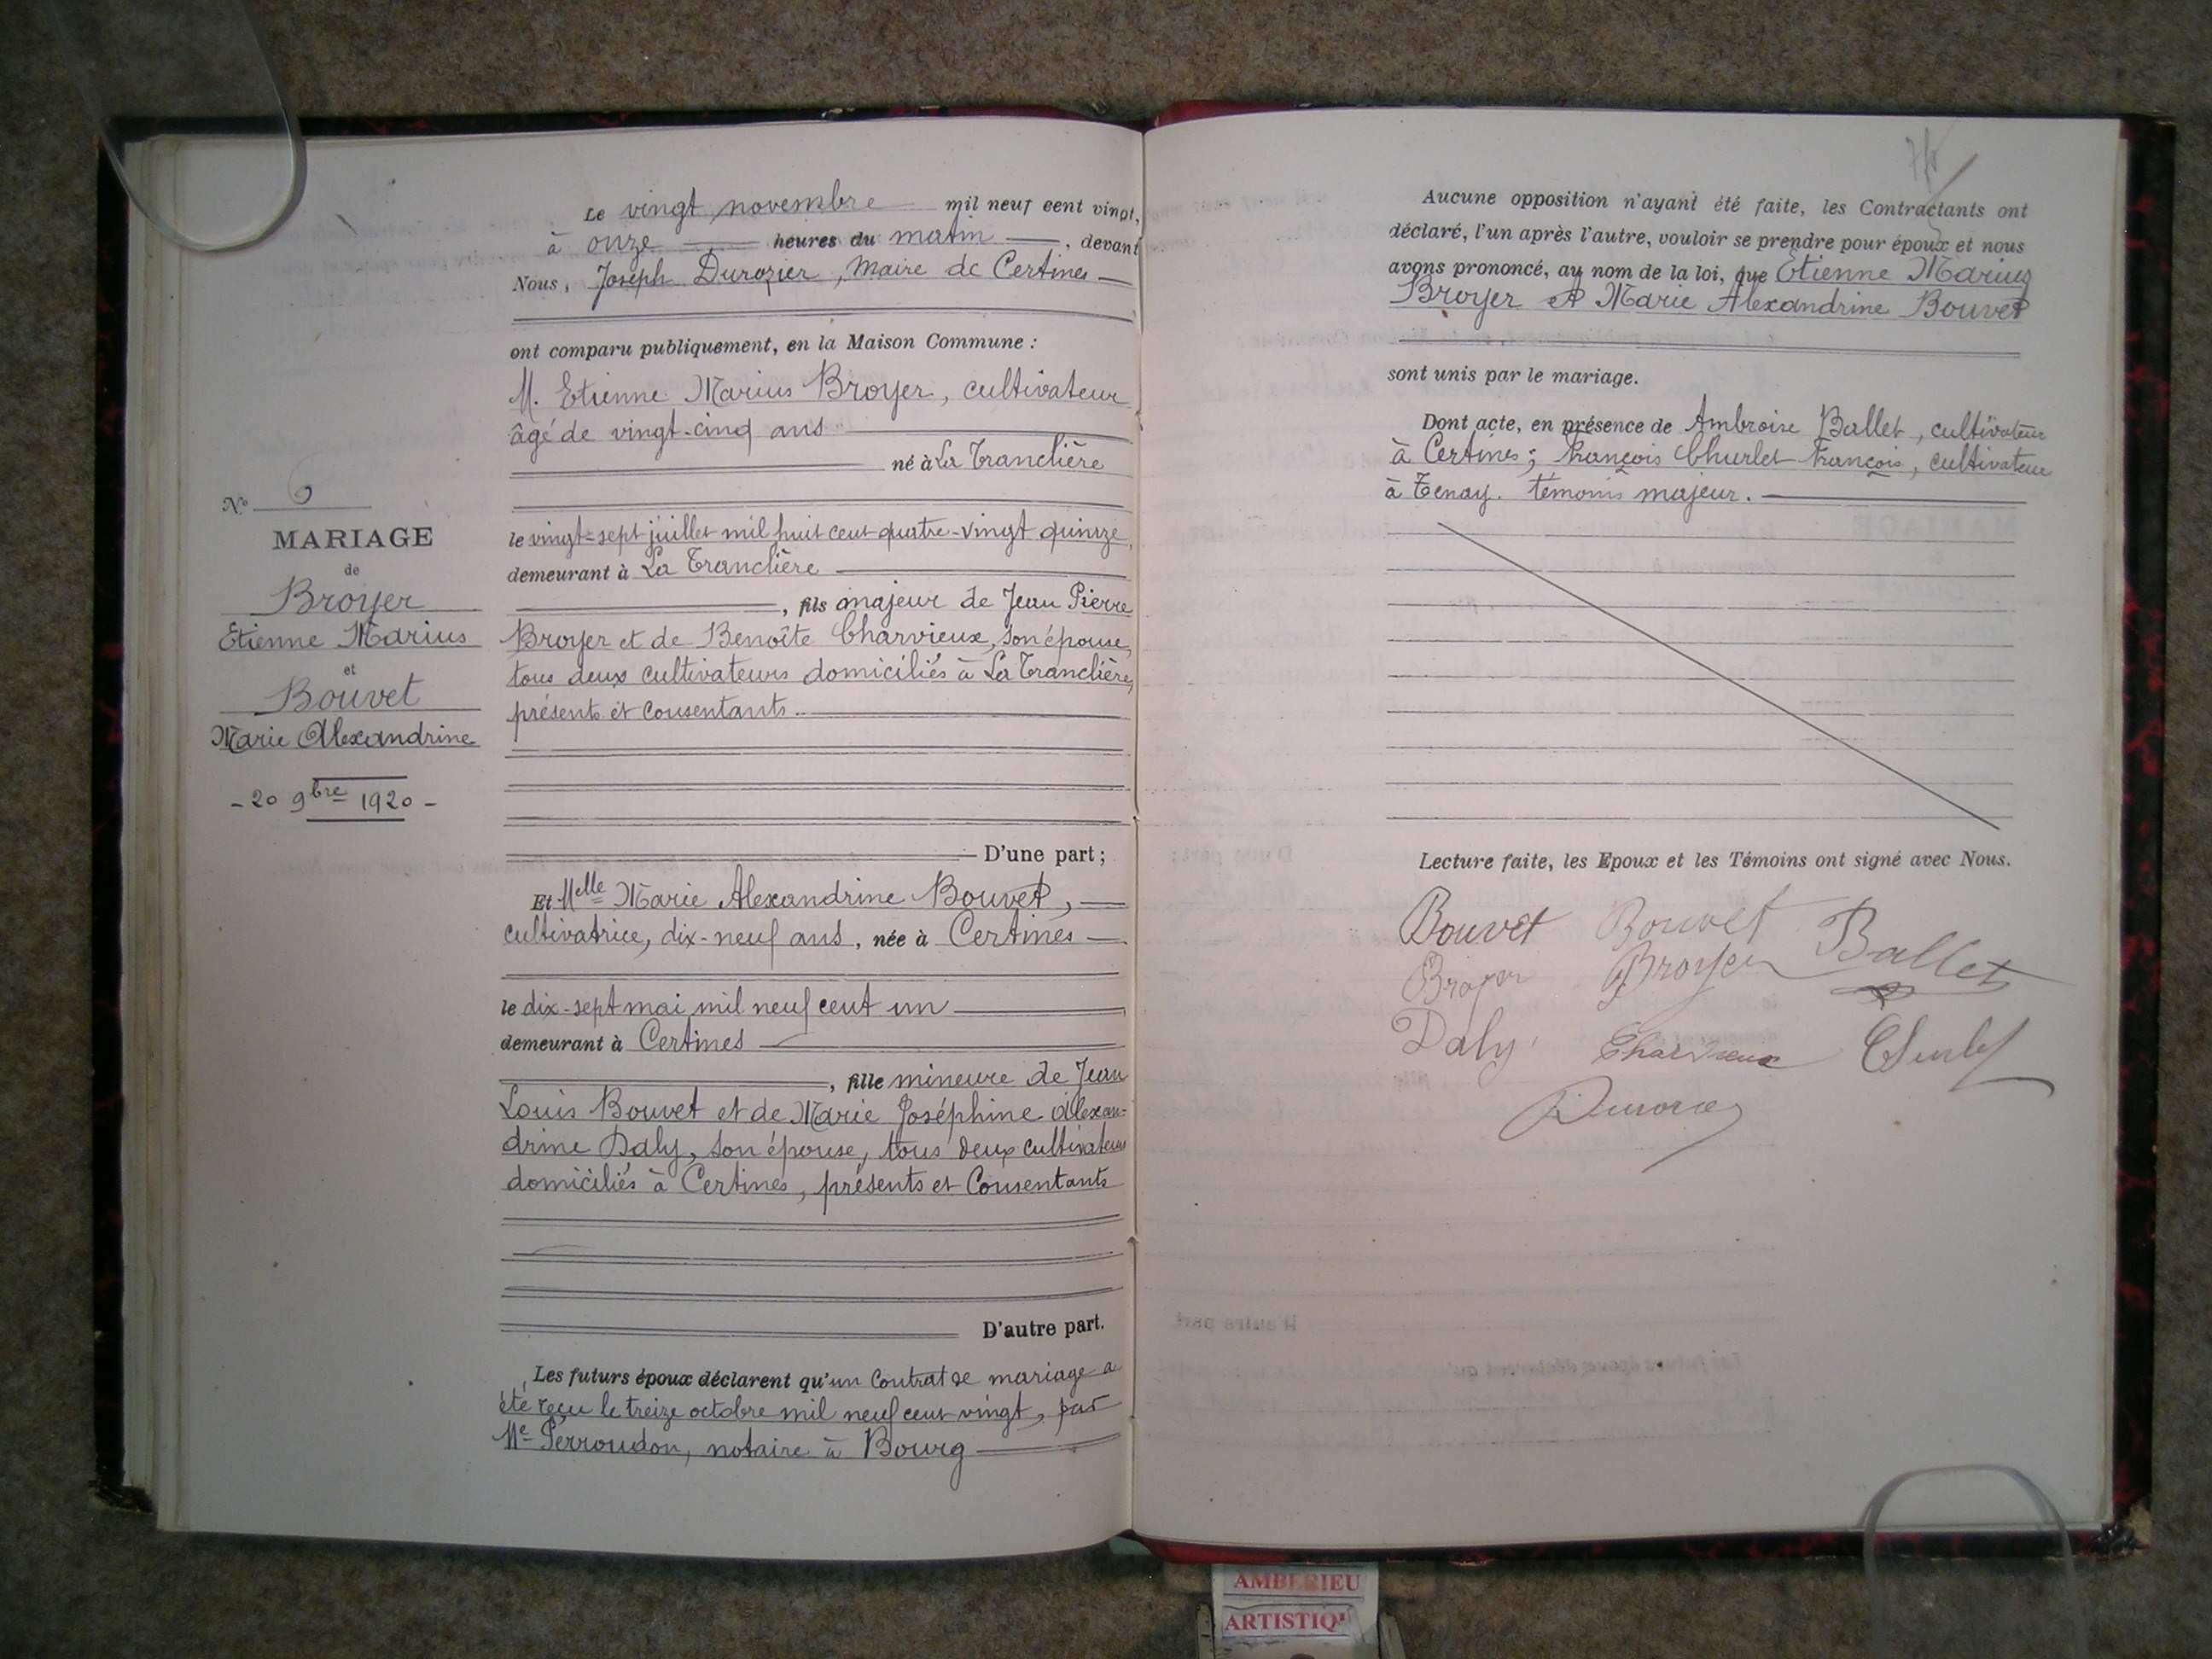 N° 6
MARIAGE
de
Broyer
Etienne Marius
et
Bouvet
Marie Alexandrine
- 20 9bre 1920 -
Le vingt novembre mil neuf cent vingt,
à onze heures du matin, devant
Nous, Joseph Durozier, Maire de Certines
ont comparu publiquement, en la Maison Commune :
M. Etienne Marius Broyer, cultivateur
âgé de vingt-cinq ans
né à La Tranclière
le vingt-sept juillet mil huit cent quatre-vingt quinze,
demeurant à La Tranclière
, fils majeur de Jean Pierre
Broyer et de Benoîte Charvieux, son épouse,
tous deux cultivateurs domiciliés à La Tranclière,
présents et consentants.
D'une part ;
Et Melle Marie Alexandrine Bouvet,
cultivatrice, dix-neuf ans, née à Certines
le dix-sept mai mil neuf cent un
demeurant à Certines
, fille mineure de Jean
Louis Bouvet et de Marie Joséphine Alexan-
drine Daly, son épouse, tous deux cultivateurs
domiciliés à Certines, présents et Consentants
D'autre part.
Les futurs époux déclarent qu'un Contrat de mariage a
été reçu le treize octobre mil neuf cent vingt, par
Me Perroudon, notaire à Bourg
Aucune opposition n'ayant été faite, les Contractants ont
déclaré, l'un après l'autre, vouloir se prendre pour époux et nous
avons prononcé, au nom de la loi, que Etienne Marius
Broyer et Marie Alexandrine Bouvet
sont unis par le mariage.
Dont acte, en présence de Ambroise Ballet, cultivateur
à Certines ; François Churlet François, cultivateur
à Tenay. témoins majeur.
Lecture faite, les Epoux et les Témoins ont signé avec Nous.
Bouvet Bouvet Ballet
Broyer Broyer
Daly Charvieux Churlet
Durozier
AMBERIEU
ARTISTIQU